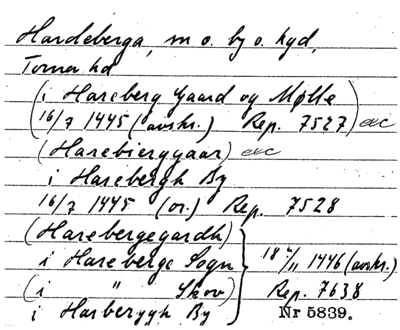 Hardeberga, sn o. by o. hgd,
Torna hd
(i Hareberg Gaard og Mølle
16/7 1445 (avskr.) Rep. 7527) exc
(Harebierggaar) exc
i Harebergh By
16/7 1445 (or.) Rep. 7528
(Harebergegardh)
i Hareberge Sogn } 18/11 1446 (avskr.)
(i " Skov) Rep. 7638
i Harberggh By Nr 5839.